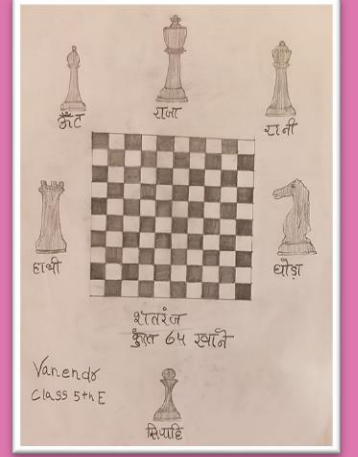 ऊँट
राजा
रानी
हाथी
घोड़ा
शतरंज
कुल 64 खाने
Vanendr
Class 5th E
सिपाहि